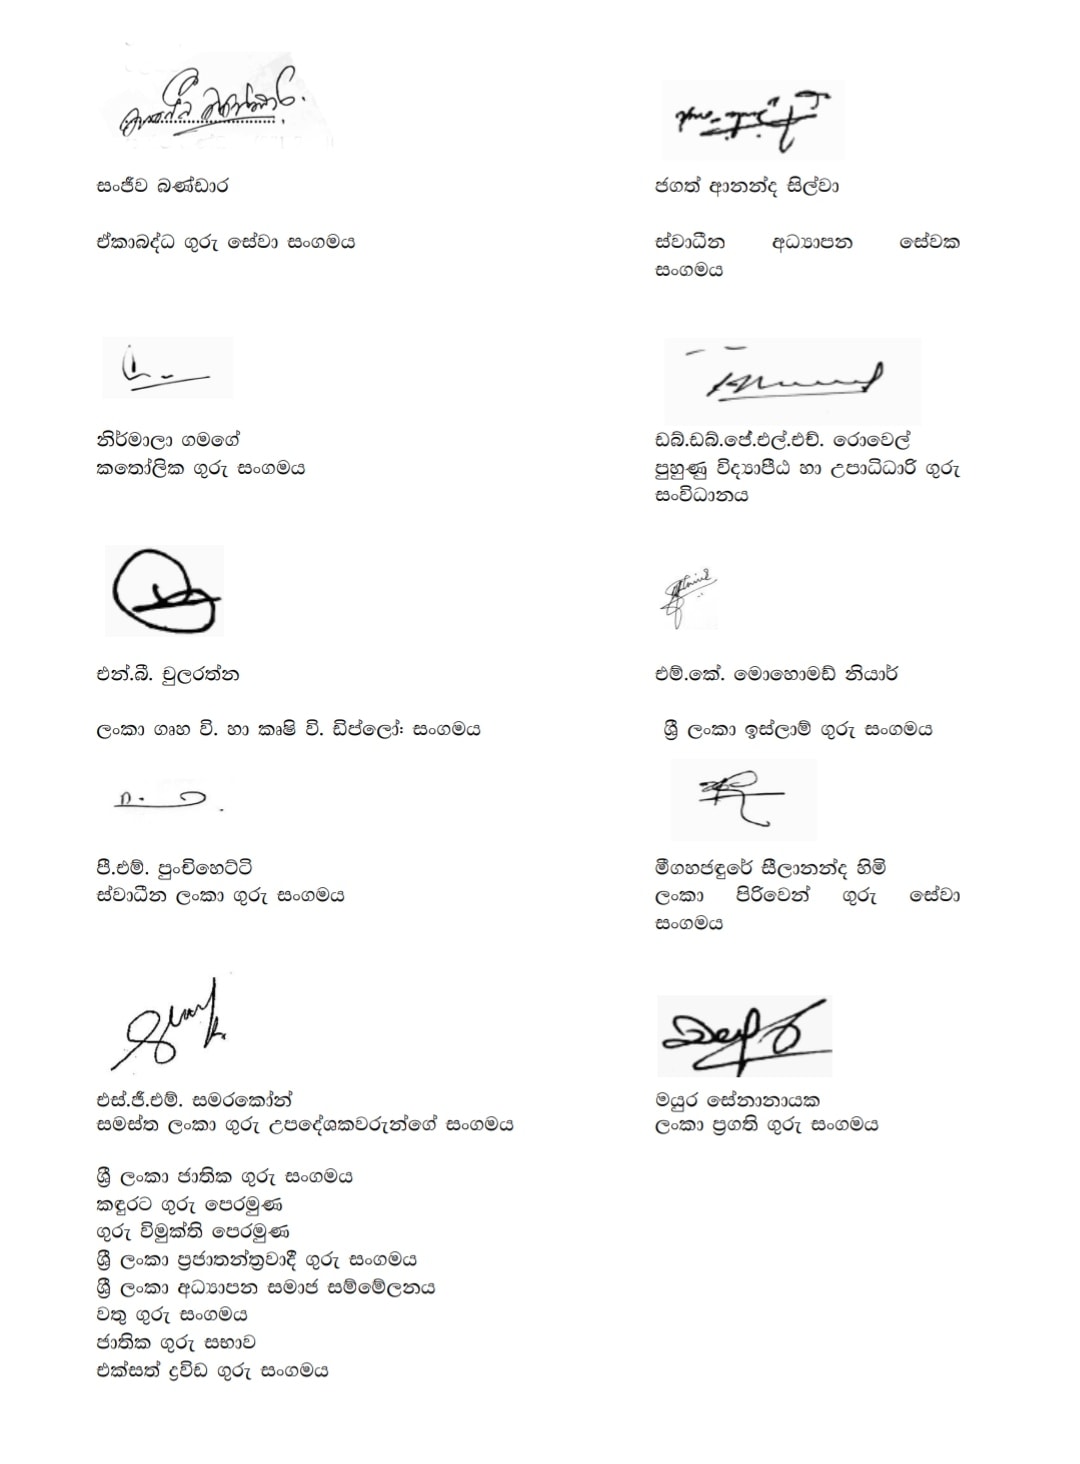 සංජීව බණ්ඩාර
ඒකාබද්ධ ගුරු සේවා සංගමය
ජගත් ආනන්ද සිල්වා
ස්වාධීන අධ්‍යාපන සේවක
සංගමය
නිර්මාලා ගමගේ
කතෝලික ගුරු සංගමය
ඩබ්.ඩබ්.ජේ.එල්.එච්. රොවෙල්
පුහුණු විද්‍යාපීඨ හා උපාධිධාරි ගුරු
සංවිධානය
එන්.බී. චුලරත්න
ලංකා ගෘහ වි. හා කෘෂි වි. ඩිප්ලෝ: සංගමය
එම්.කේ. මොහොමඩ් නියාර්
ශ්‍රී ලංකා ඉස්ලාම් ගුරු සංගමය
පී.එම්. පුංචිහෙට්ටි
ස්වාධීන ලංකා ගුරු සංගමය
මීගහජඳුරේ සීලානන්ද හිමි
ලංකා පිරිවෙන් ගුරු සේවා
සංගමය
එස්.ජී.එම්. සමරකෝන්
සමස්ත ලංකා ගුරු උපදේශකවරුන්ගේ සංගමය
මයුර සේනානායක
ලංකා ප්‍රගති ගුරු සංගමය
ශ්‍රී ලංකා ජාතික ගුරු සංගමය
කඳුරට ගුරු පෙරමුණ
ගුරු විමුක්ති පෙරමුණ
ශ්‍රී ලංකා ප්‍රජාතන්ත්‍රවාදී ගුරු සංගමය
ශ්‍රී ලංකා අධ්‍යාපන සමාජ සම්මේලනය
වතු ගුරු සංගමය
ජාතික ගුරු සභාව
එක්සත් ද්‍රවිඩ ගුරු සංගමය